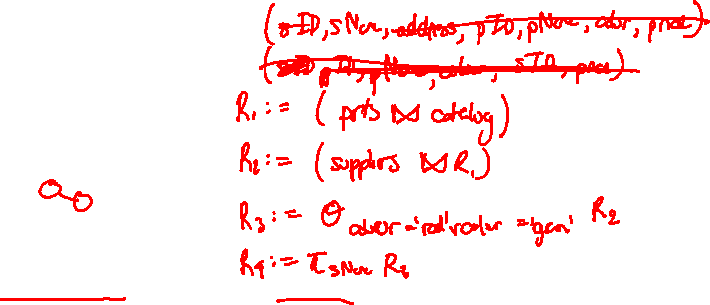 (sID, sName, address, pID, pName, color, price)
(sID pID, pName, color, sID, price)
R₁ := (parts ⋈ catalog)
R₂ := (suppliers ⋈ R₁)
R₃ := Θ color='red' v color='green' R₂
R₄ := π sName R₃